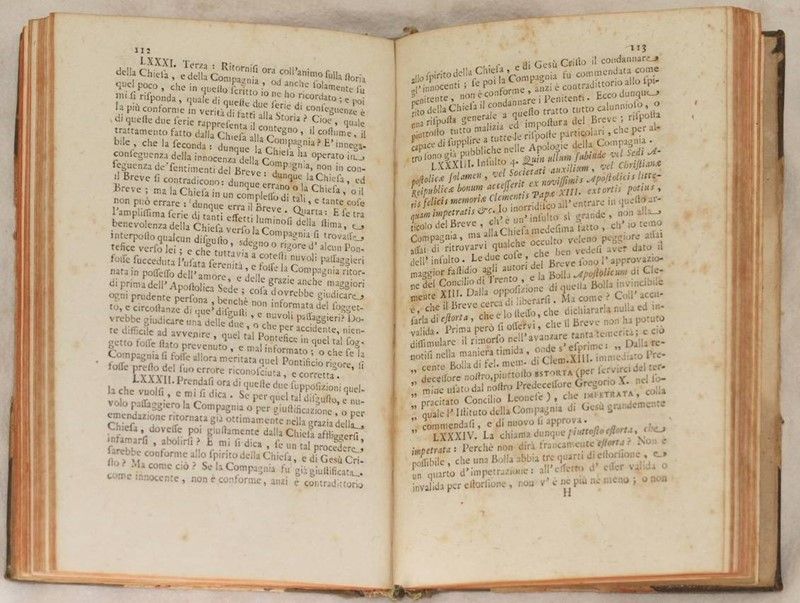 112
LXXXI. Terza : Ritornisi ora coll'animo sulla storia
della Chiesa , e della Compagnia , od anche solamente su
quel poco , che in questo scritto io ne ho ricordato ; e poi
mi si risponda , quale di queste due serie di conseguenze è
la più conforme in verità di fatti alla Storia ? Cioè , quale
di queste due serie rappresenta il contegno , il costume , il
trattamento fatto dalla Chiesa alla Compagnia ? E' innega-
bile , che la seconda : dunque la Chiesa ha operato in
conseguenza della innocenza della Compagnia, non in con-
seguenza de' sentimenti del Breve : dunque la Chiesa , ed
il Breve si contradicono : dunque errano o la Chiesa , o il
Breve ; ma la Chiesa in un complesso di tali , e tante cose
non può errare : dunque erra il Breve . Quarta : E se tra
l'amplissima serie di tanti effetti luminosi della stima, e
benevolenza della Chiesa verso la Compagnia si trovasse
interposto qualcun disgusto , sdegno o rigore d' alcun Pon-
tefice verso lei ; e che tuttavia a cotesti nuvoli passaggieri
fosse succeduta l'usata serenità , e fosse la Compagnia ritor-
nata in possesso dell' amore , e delle grazie anche maggiori
di prima dell' Apostolica Sede ; cosa dovrebbe giudicare
ogni prudente persona , benchè non informata del sogget-
to, e circostanze di que' disgusti , e nuvoli passaggieri ? Do-
vrebbe giudicare una delle due , o che per accidente, nien-
te difficile ad avvenire , quel tal Pontefice in quel tal sog-
getto fosse stato prevenuto , e mal informato ; o che se la
Compagnia si fosse allora meritata quel Pontificio rigore, si
fosse presto del suo errore riconosciuta , e corretta .
LXXXII. Prendasi ora di queste due supposizioni quel-
la che vuolsi , e mi si dica . Se per quel tal disgusto, e nu-
volo passaggiero la Compagnia o per giustificazione , o per
emendazione ritornata già ottimamente nella grazia della
Chiesa , dovesse poi giustamente dalla Chiesa affliggersi ,
infamarsi , abolirsi ? E mi si dica , se un tal procedere
sarebbe conforme allo spirito della Chiesa , e di Gesù Cri-
sto ? Ma come ciò ? Se la Compagnia fu già giustificata
come innocente , non è conforme, anzi è contradittorio
113
allo spirito della Chiesa , e di Gesù Cristo il condannare
gl' innocenti ; se poi la Compagnia fu commendata come
penitente , non è conforme , anzi è contradittorio allo spi-
rito della Chiesa il condannare i Penitenti . Ecco dunque
una risposta generale a questo tratto tutto calunnioso , o
piuttosto tutto malizia ed impostura del Breve ; risposta
capace di supplire a tutte le risposte particolari , che per al-
tro sono già pubbliche nelle Apologie della Compagnia .
LXXXIII. Insulto 4. Quin ullum subinde vel Sedi A-
postolicæ solamen , vel Societati auxilium , vel Christianæ
Reipublicæ bonum accesserit ex novissimis Apostolicis litte-
ris felicis memoriæ Clementis Papæ XIII. extortis potius ,
quam impetratis &c. Io inorridisco all' entrare in questo ar-
ticolo del Breve , ch' è un' insulto sì grande , non alla
Compagnia , ma alla Chiesa medesima fatto , ch' io temo
assai di ritrovarvi qualche occulto veleno peggiore assai
dell' insulto . Le due cose , che ben vedesi aver dato il
maggior fastidio agli autori del Breve sono l' approvazio-
ne del Concilio di Trento , e la Bolla Apostolicum di Cle-
mente XIII. Dalla opposizione di questa Bolla invincibile
è , che il Breve cerca di liberarsi . Ma come ? Coll' accu-
sarla di estorta , che è lo stesso, che dichiararla nulla ed in-
valida . Prima però si osservi , che il Breve non ha potuto
dissimulare il rimorso nell' avanzare tanta temerità ; e ciò
notisi nella maniera timida , onde s' esprime : „ Dalla re-
„ cente Bolla di fel. mem. di Clem. XIII. immediato Pre-
„ decessore nostro, piuttosto ESTORTA (per servirci del ter-
„ mine usato dal nostro Predecessore Gregorio X. nel so-
„ pracitato Concilio Leonese ) , che IMPETRATA , colla
„ quale l' Istituto della Compagnia di Gesù grandemente
„ commendasi , e di nuovo si approva .
LXXXIV. La chiama dunque piuttosto estorta , che
impetrata : Perchè non dirla francamente estorta ? Non è
possibile , che una Bolla abbia tre quarti di estorsione , e
un quarto d' impetrazione : all' effetto d' esser valida o
invalida per estorsione , non v' è nè più nè meno ; o non
H